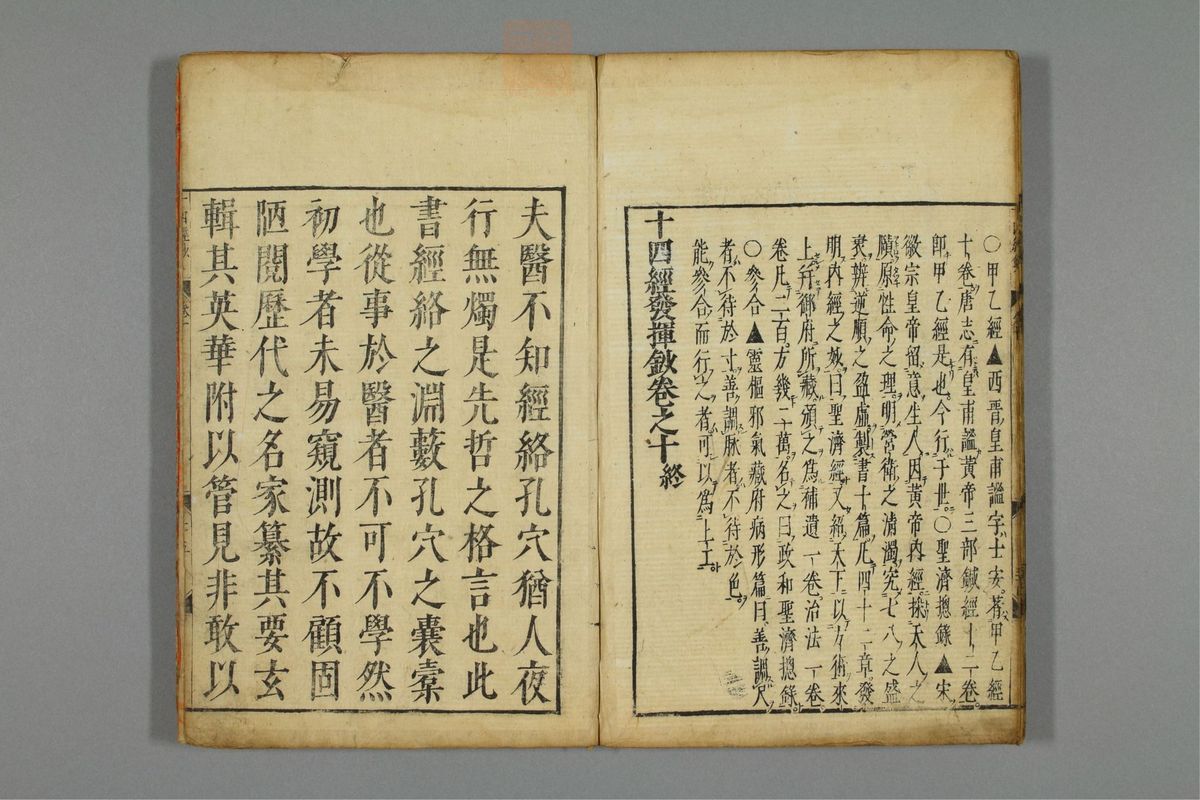 〇甲乙經▲西晋皇甫謐字士安著甲乙經
十卷唐志有皇甫謐黄帝三部鍼經十二卷
即甲乙經是也今行于世〇聖濟摠錄▲宋
徽宗皇帝留意生人因黄帝内經採天人之
賾原性命之理明營衛之清濁究七八之盛
衰辨逆順之盈虚製書十篇凡四十二章發
明内經之妙曰聖濟經又紹天下以方術來
上并御府所藏頒之爲補遺一卷治法一卷
卷凡二百方幾二萬名之曰政和聖濟摠錄
〇參合▲靈樞邪氣藏府病形篇曰善調尺
者不待於寸善調脉者不待於色
能參合而行之者可以爲上工
十四經發揮鈔卷之十終
夫醫不知經絡孔穴猶人夜
行無燭是先哲之格言也此
書經絡之淵藪孔穴之囊橐
也從事於醫者不可不學然
初學者未易窺測故不顧固
陋閱歷代之名家纂其要玄
輯其英華附以管見非敢以